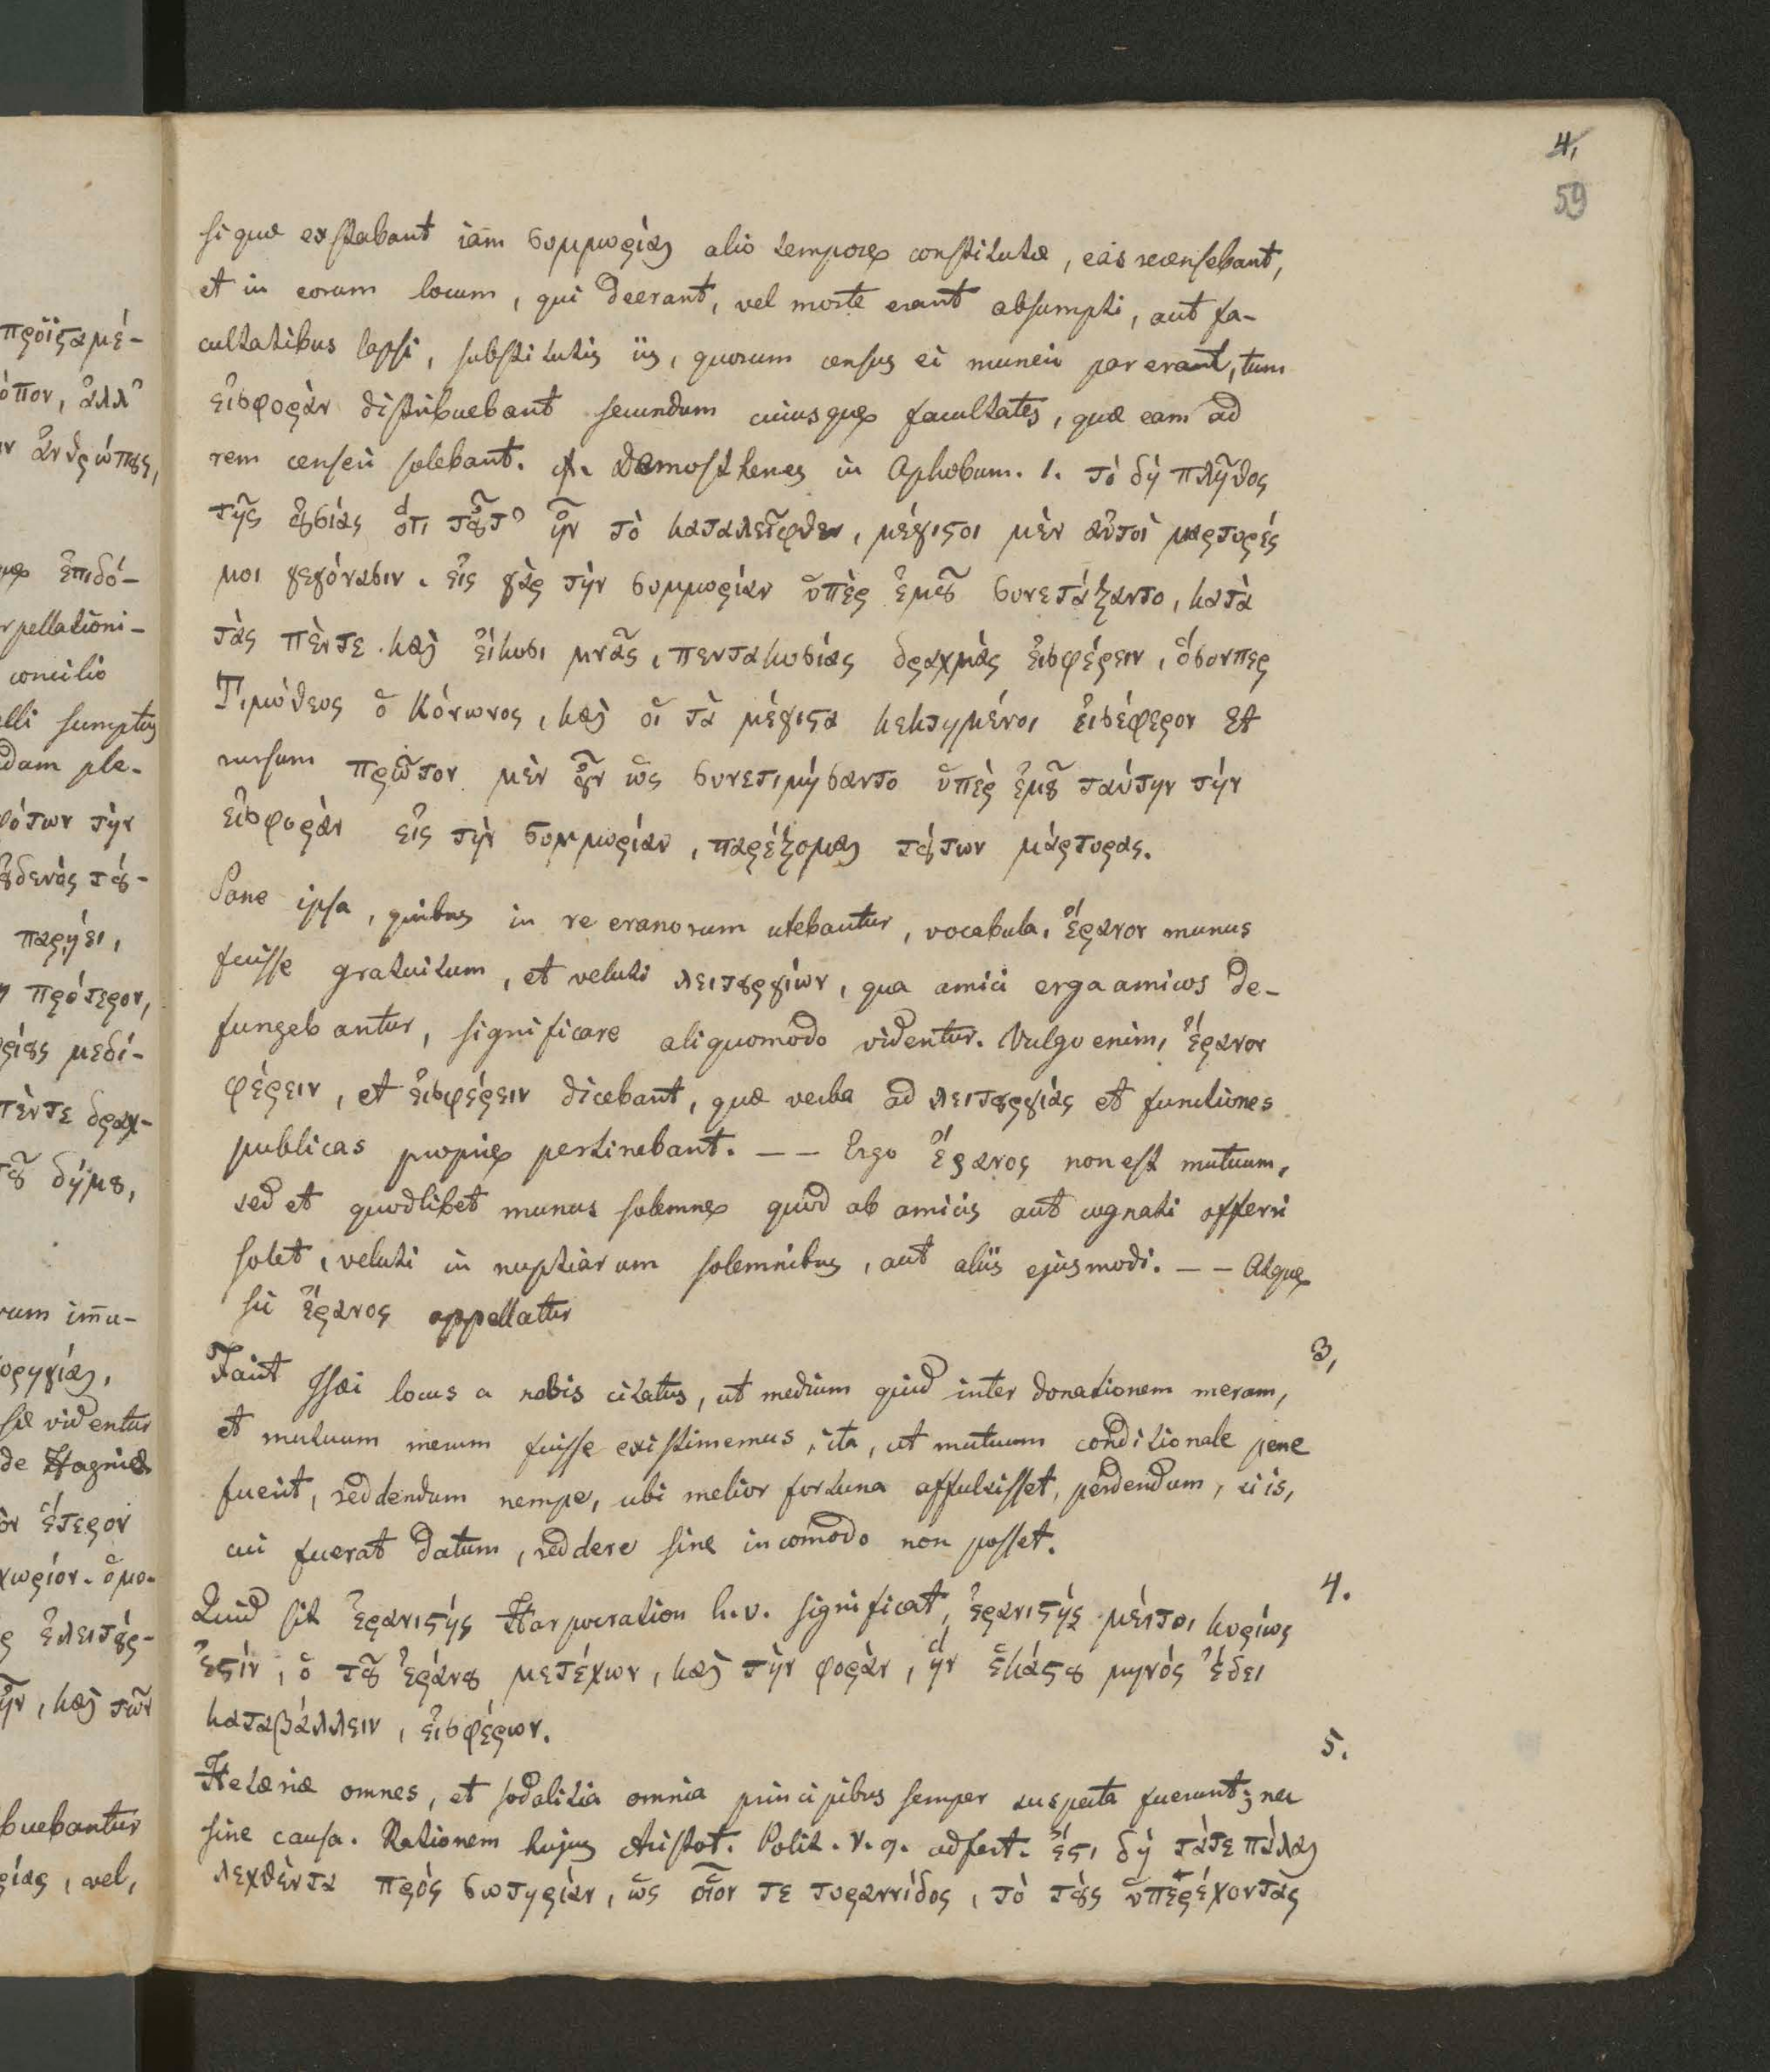 4,
59
si quæ exstabant iam συμμορίαι alio tempore constitutæ, eas recensebant,
et in eorum locum, qui deerant, vel morte erant absumpti, aut fa-
cultatibus lapsi, substitutis iis, quorum census ei muneri par erant, tum
εἰσφορὰν distribuebant secundum cuiusque facultates, quæ eam ad
rem censeri solebant. Demosthenes in Aphobum. 1. τὸ δὴ πλῆθος
τῆς οὐσίας ὅτι τοῦτ' ἦν τὸ καταλειφθεν, μέγιστοι μὲν αὐτοὶ μαρτυρές
μοι γεγόνασιν. εἰς γὰρ τὴν συμμορίαν ὑπὲρ ἐμοῦ συνετάξαντο, κατὰ
τὰς πέντε καὶ εἴκοσι μνᾶς, πεντακοσίας δραχμὰς εἰσφέρειν, ὅσονπερ
Τιμόθεος ὁ Κόνωνος, καὶ οἱ τὰ μέγιστα κεκτημένοι εἰσέφερον Et
rursum πρῶτον μὲν οὖν ὡς συνετιμήσαντο ὑπὲρ ἐμοῦ ταύτην τὴν
εἰσφορὰν εἰς τὴν συμμορίαν, παρέξομαι τούτων μάρτυρας.
Sane ipsa, quibus in re eranorum utebantur, vocabula, ἔρανον munus
fuisse gratuitum, et veluti λειτουργίων, qua amici erga amicos de-
fungebantur, significare aliquomodo videntur. Vulgo enim, ἔρανον
φέρειν, et εἰσφέρειν dicebant, quæ verba ad λειτουργίας et functiones
publicas proprie pertinebant. -- Ergo ἔρανος non est mutuum,
sed et quodlibet munus solemne quod ab amicis aut cognati offerri
solet, veluti in nuptiarum solemnibus, aut aliis ejusmodi. -- Atque
sic ἔρανος appellatur
3,
Facit Isæi locus a nobis citatus, ut medium quid inter donationem meram,
et mutuum merum fuisse existimemus, ita, ut mutuum conditionale pene
fuerit, reddendum nempe, ubi melior fortuna affulsisset, perdendum, si is,
cui fuerat datum, reddere sine incom̄odo non posset.
4.
Quid sit ἐρανιστής Harpocration h.v. significat, ἐρανιστής μέντοι κυρίως
ἐστίν, ὁ τοῦ ἐράνου μετέχων, καὶ τὴν φορὰν, ἣν ἑκάστου μηνός ἔδει
καταβάλλειν, εἰσφέρων.
5.
Hetæriæ omnes, et sodalitia omnia principibus semper suspecta fuerunt; nec
sine causa. Rationem hujus Aristot. Polit. V. 9. adfert. ἔστι δὴ τάτε πάλαι
λεχθέντα πρός σωτηρίαν, ὡς οἷον τε τυραννίδος, τὸ τοὺς ὑπερέχοντας